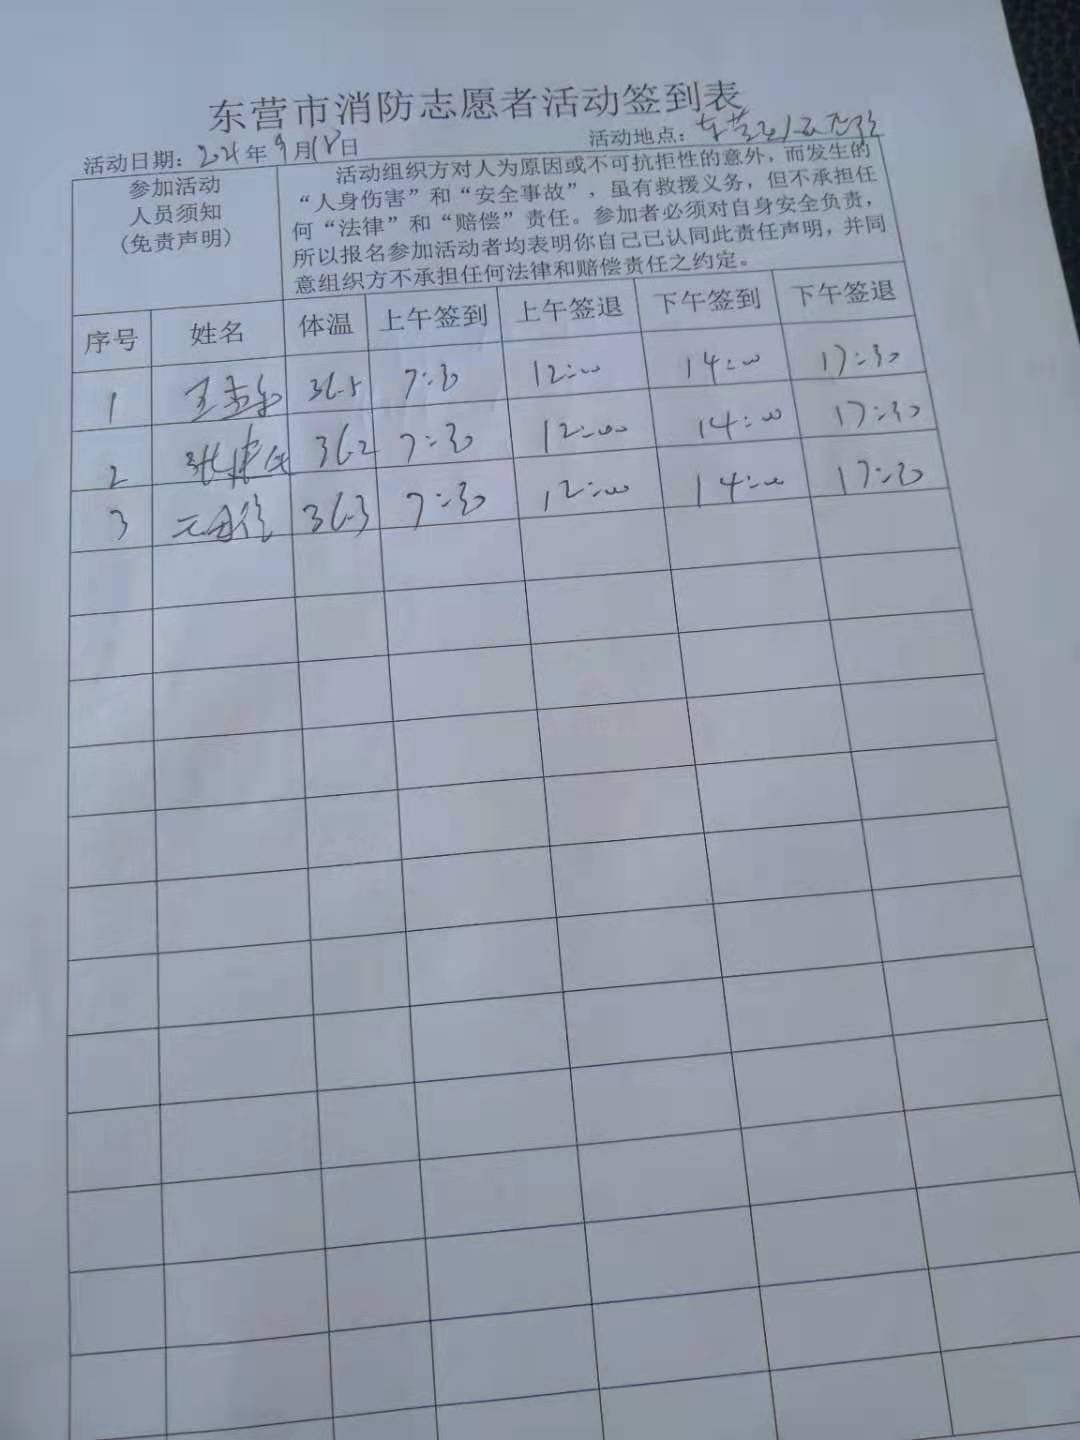 东营市消防志愿者活动签到表
活动日期：2021年9月18日 活动地点：东营
参加活动
人员须知
（免责声明）
活动组织方对人为原因或不可抗拒性的意外，而发生的
“人身伤害”和“安全事故”，虽有救援义务，但不承担任
何“法律”和“赔偿”责任。参加者必须对自身安全负责，
所以报名参加活动者均表明你自己已认同此责任声明，并同
意组织方不承担任何法律和赔偿责任之约定。
序号 姓名 体温 上午签到 上午签退 下午签到 下午签退
1 36.5 7:30 12:00 14:00 17:30
2 张建 36.2 7:30 12:00 14:00 17:30
3 36.3 7:30 12:00 14:00 17:30